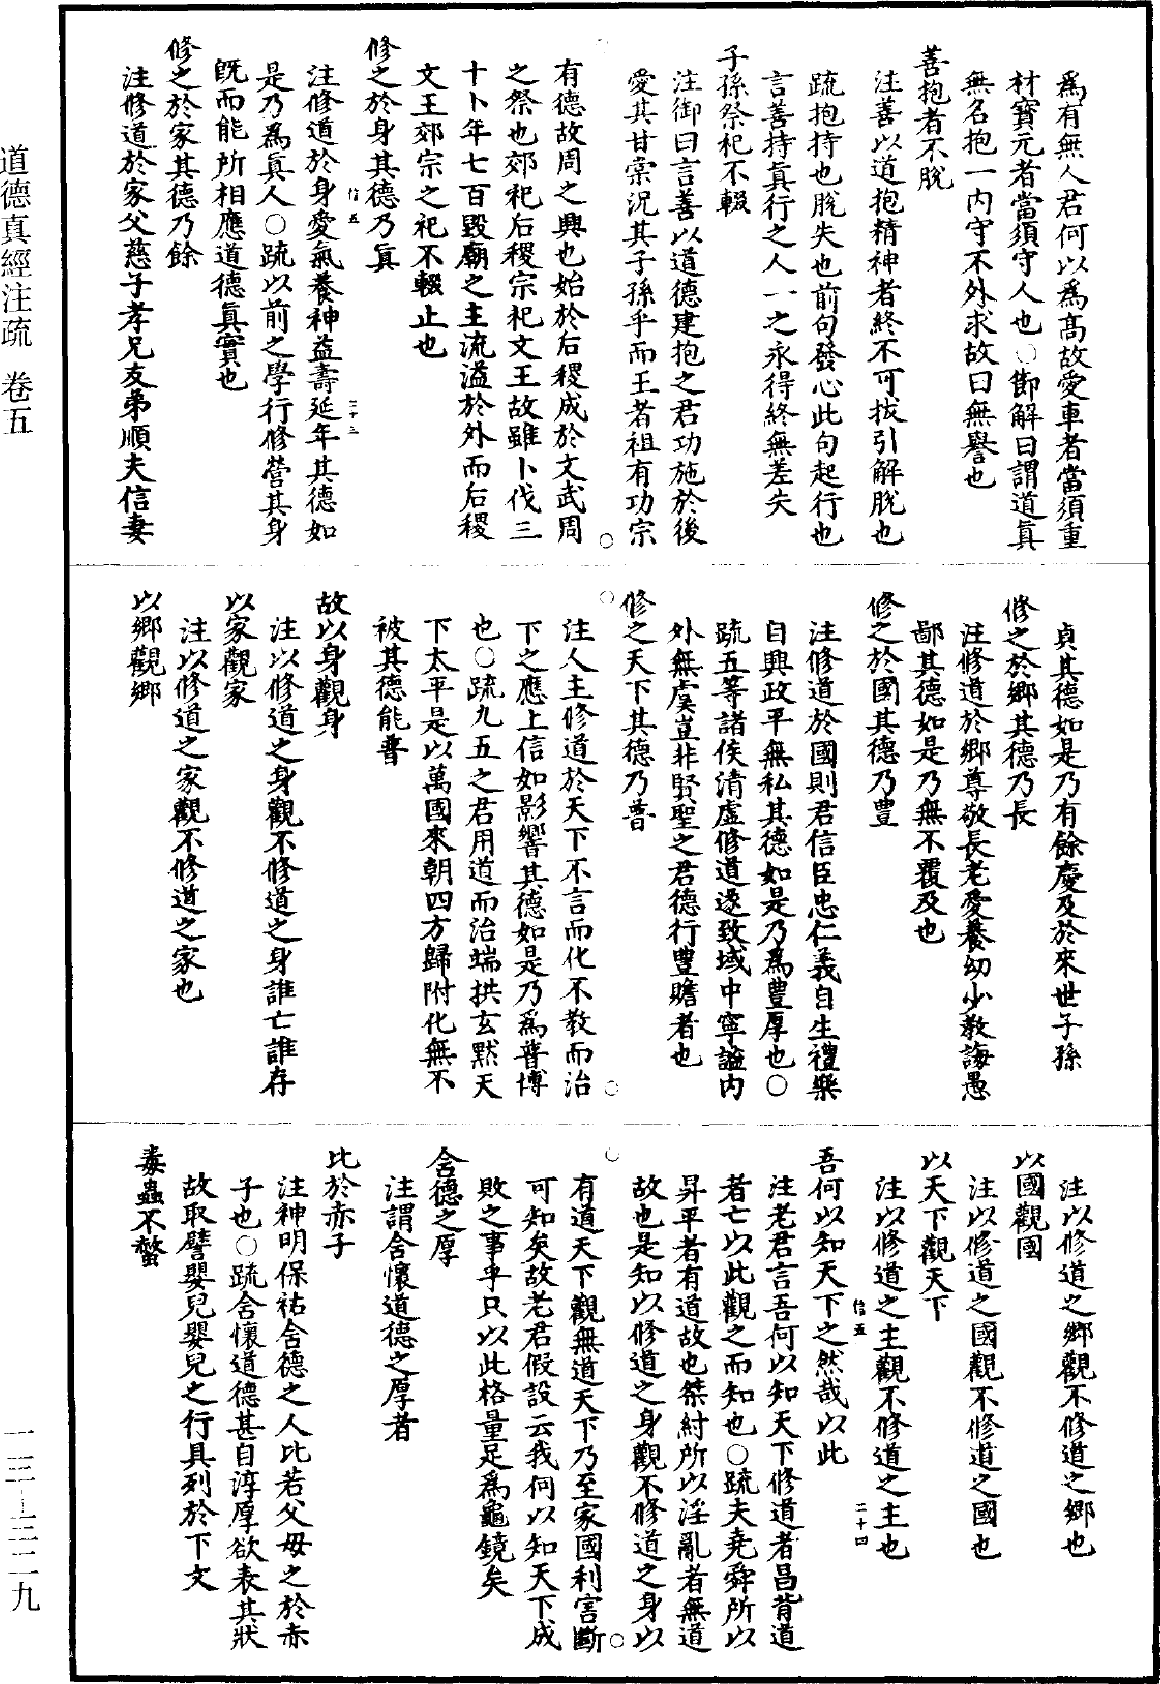 為有無人君何以為髙故愛車者當須重
材寳元者當須守人也○節解曰謂道眞
無名抱一内守不外求故曰無譽也
善抱者不脫
注善以道抱精神者終不可拔引解脫也
疏抱持也脫失也前句發心此句起行也
言善持眞行之人一之永得終無差失
子孫祭祀不輟
注御曰言善以道德建抱之君功施於後
愛其甘棠況其子孫乎而王者祖有功宗
有德故周之興也始於后稷成於文武周
之祭也郊祀后稷宗祀文王故雖卜伐三
十卜年七百毀廟之主流溢於外而后稷
文王郊宗之祀不輟止也
修之於身其德乃眞
信五
二十三
注修道於身愛氣養神益壽延年其德如
是乃為眞人○疏以前之學行修營其身
旣而能所相應道德眞實也
修之於家其德乃餘
注修道於家父慈子孝兄友弟順夫信妻
貞其德如是乃有餘慶及於來世子孫
修之於鄉其德乃長
注修道於鄉尊敬長老愛養幼少教誨愚
鄙其德如是乃無不覆及也
修之於國其德乃豐
注修道於國則君信臣忠仁義自生禮樂
自興政平無私其德如是乃為豐厚也○
疏五等諸侯清虛修道遂致域中寧謐内
外無虞豈非賢聖之君德行豐贍者也
修之天下其德乃普
注人主修道於天下不言而化不教而治
下之應上信如影響其德如是乃為普博
也○疏九五之君用道而治端拱玄默天
下太平是以萬國來朝四方歸附化無不
被其德能普
故以身觀身
注以修道之身觀不修道之身誰亡誰存
以家觀家
注以修道之家觀不修道之家也
以鄉觀鄉
注以修道之鄉觀不修道之鄉也
以國觀國
注以修道之國觀不修道之國也
以天下觀天下
注以修道之主觀不修道之主也
信五
二十四
吾何以知天下之然哉以此
注老君言吾何以知天下修道者昌背道
者亡以此觀之而知也○疏夫堯舜所以
昇平者有道故也桀紂所以淫亂者無道
故也是知以修道之身觀不修道之身以
有道天下觀無道天下乃至家國利害斷
可知矣故老君假設云我何以知天下成
敗之事乎只以此格量足為龜鏡矣
含德之厚
注謂含懷道德之厚者
比於赤子
注神明保祐含德之人比若父母之於赤
子也○疏含懷道德甚自淳厚欲表其狀
故取譬嬰兒嬰兒之行具列於下文
毒蟲不螫
道德真經注疏 卷五
一三—三二九